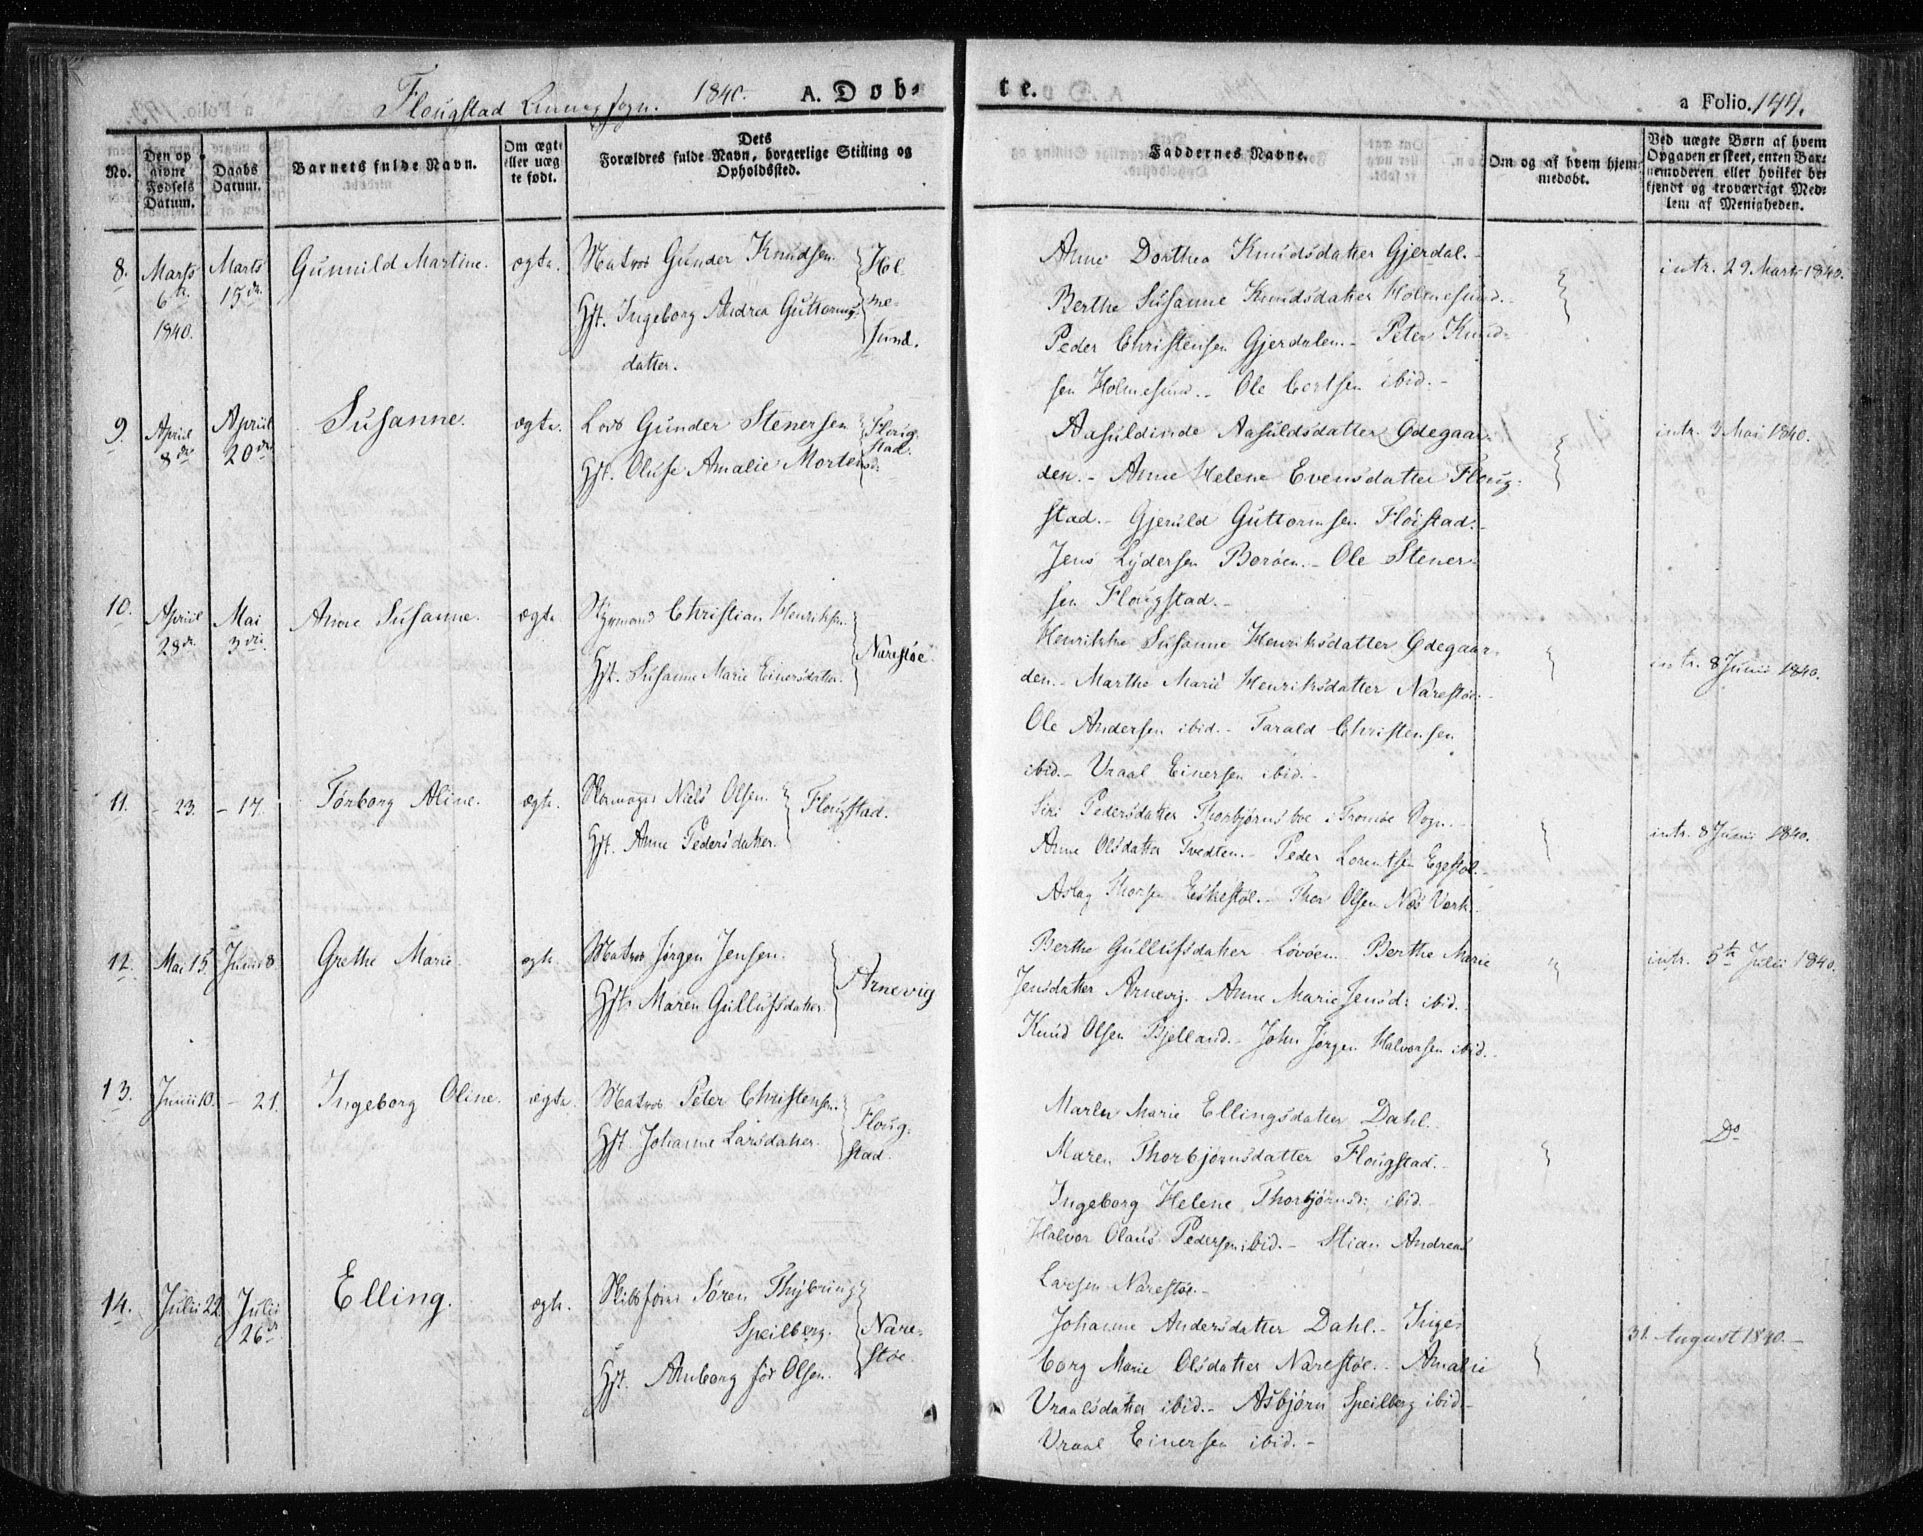 Flougstad Annexsogn. 1840. A. Døb- te. a Folio. 144.
No. Den opgivne Fødsels Datum. Daabs Datum. Barnets fulde Navn. Om ægte eller uægte født. Dets Forældres fulde Navn, borgerlige Stilling og Opholdssted. Faddernes Navne. Om og af hvem hjemmedøbt. Ved uægte Børn af hvem Opgaven er skeet, enten Barnemoderen eller hvilket bekjendt og troværdigt Medlem af Menigheden.
8. Marts 6te 1840. Marts 15de Gunnild Martine. ægte. Matros Gunder Knudsen Hst. Ingeborg Andrea Guttormsdatter. Holmesund.
Anne Dorthea Knudsdatter Gjerdal.-
Berthe Susanne Knudsdatter Holmesund.-
Peder Christensen Gjerdalen.- Peter Knud-
sen Holmesund.- Ole Cortsen ibid.-
intr. 29 Marts 1840.
9. April 8de April 20de Susanne. ægte. Lods Gunder Stenersen Hst. Oluse Amalie Mortensd: Flougstad.
Aasuldinde Aasuldsdatter Ødegaar-
den.- Anne Helene Evensdatter Floug-
stad.- Gjeruld Guttormsen Fløistad.-
Jens Lydersen Borøen.- Ole Stener-
sen Flougstad.-
intr. 3 Mai 1840.
10. April 28de Mai 3die Anne Susanne. ægte. Styrmand Christian Henriksen. Hst. Susanne Marie Einersdatter. Narestøe.
Henrikke Susanne Henriksdatter Ødegaar-
den.- Marthe Marie Henriksdatter Narestøe.-
Ole Andersen ibid.- Tarald Christensen
ibid.- Vraal Einersen ibid.-
intr. 8 Junii 1840.
11. - 23. - 17. Torborg Aline. ægte. Skomager Niels Olsen. Hst. Anne Pedersdatter. Flougstad.
Siri Pedersdatter Thorbjørnsboe i Tromøe Sogn.-
Anne Olsdatter Tvedten.- Peder Lorentsen Egestøl.
Aslag Thorsen Eskestøl.- Thor Olsen Næs Værk.
intr. 8 Junii 1840.
12. Mai 15. Junii 8. Grethe Marie. ægte. Matros Jørgen Jensen. Hst. Maren Gullufsdatter. Arnevig
Berthe Gullufsdatter Løvøen. Berthe Marie
Jensdatter Arnevig. Anne Marie Jensd: ibid.
Knud Olsen Bjelland.- John Jørgen Halvorsen ibid.-
intr. 5te Julii 1840.
13. Junii 10. - 21. Ingeborg Oline. ægte. Matros Peter Christensen. Hst. Johanne Larsdatter. Flougstad.
Marie Ellingsdatter Dahl.
Maren Thorbjørnsdatter Flougstad.-
Ingeborg Helene Thorbjørnsd: ibid.-
Halvor Olaus Pedersen ibid.- Stian Andreas
Larsen Narestøe.-
Do
14. Julii 22. Julii 26de Elling. ægte. Skibsfører Søren Thybring Speilberg. Hst. Amborg fød Olsen. Narestøe.
Johanne Andersdatter Dahl.- Inge-
borg Marie Olsdatter Narestøe.- Amalie
Vraalsdatter ibid.- Asbjørn Speilberg ibid.-
Vraal Einersen ibid.-
31 August 1840.-